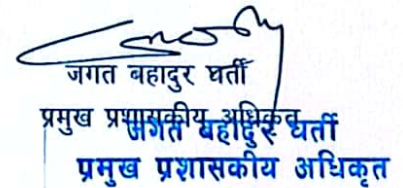 जगत बहादुर घर्ती
प्रमुख प्रशासकीय अधिकृत
जगत बहादुर घर्ती
प्रमुख प्रशासकीय अधिकृत